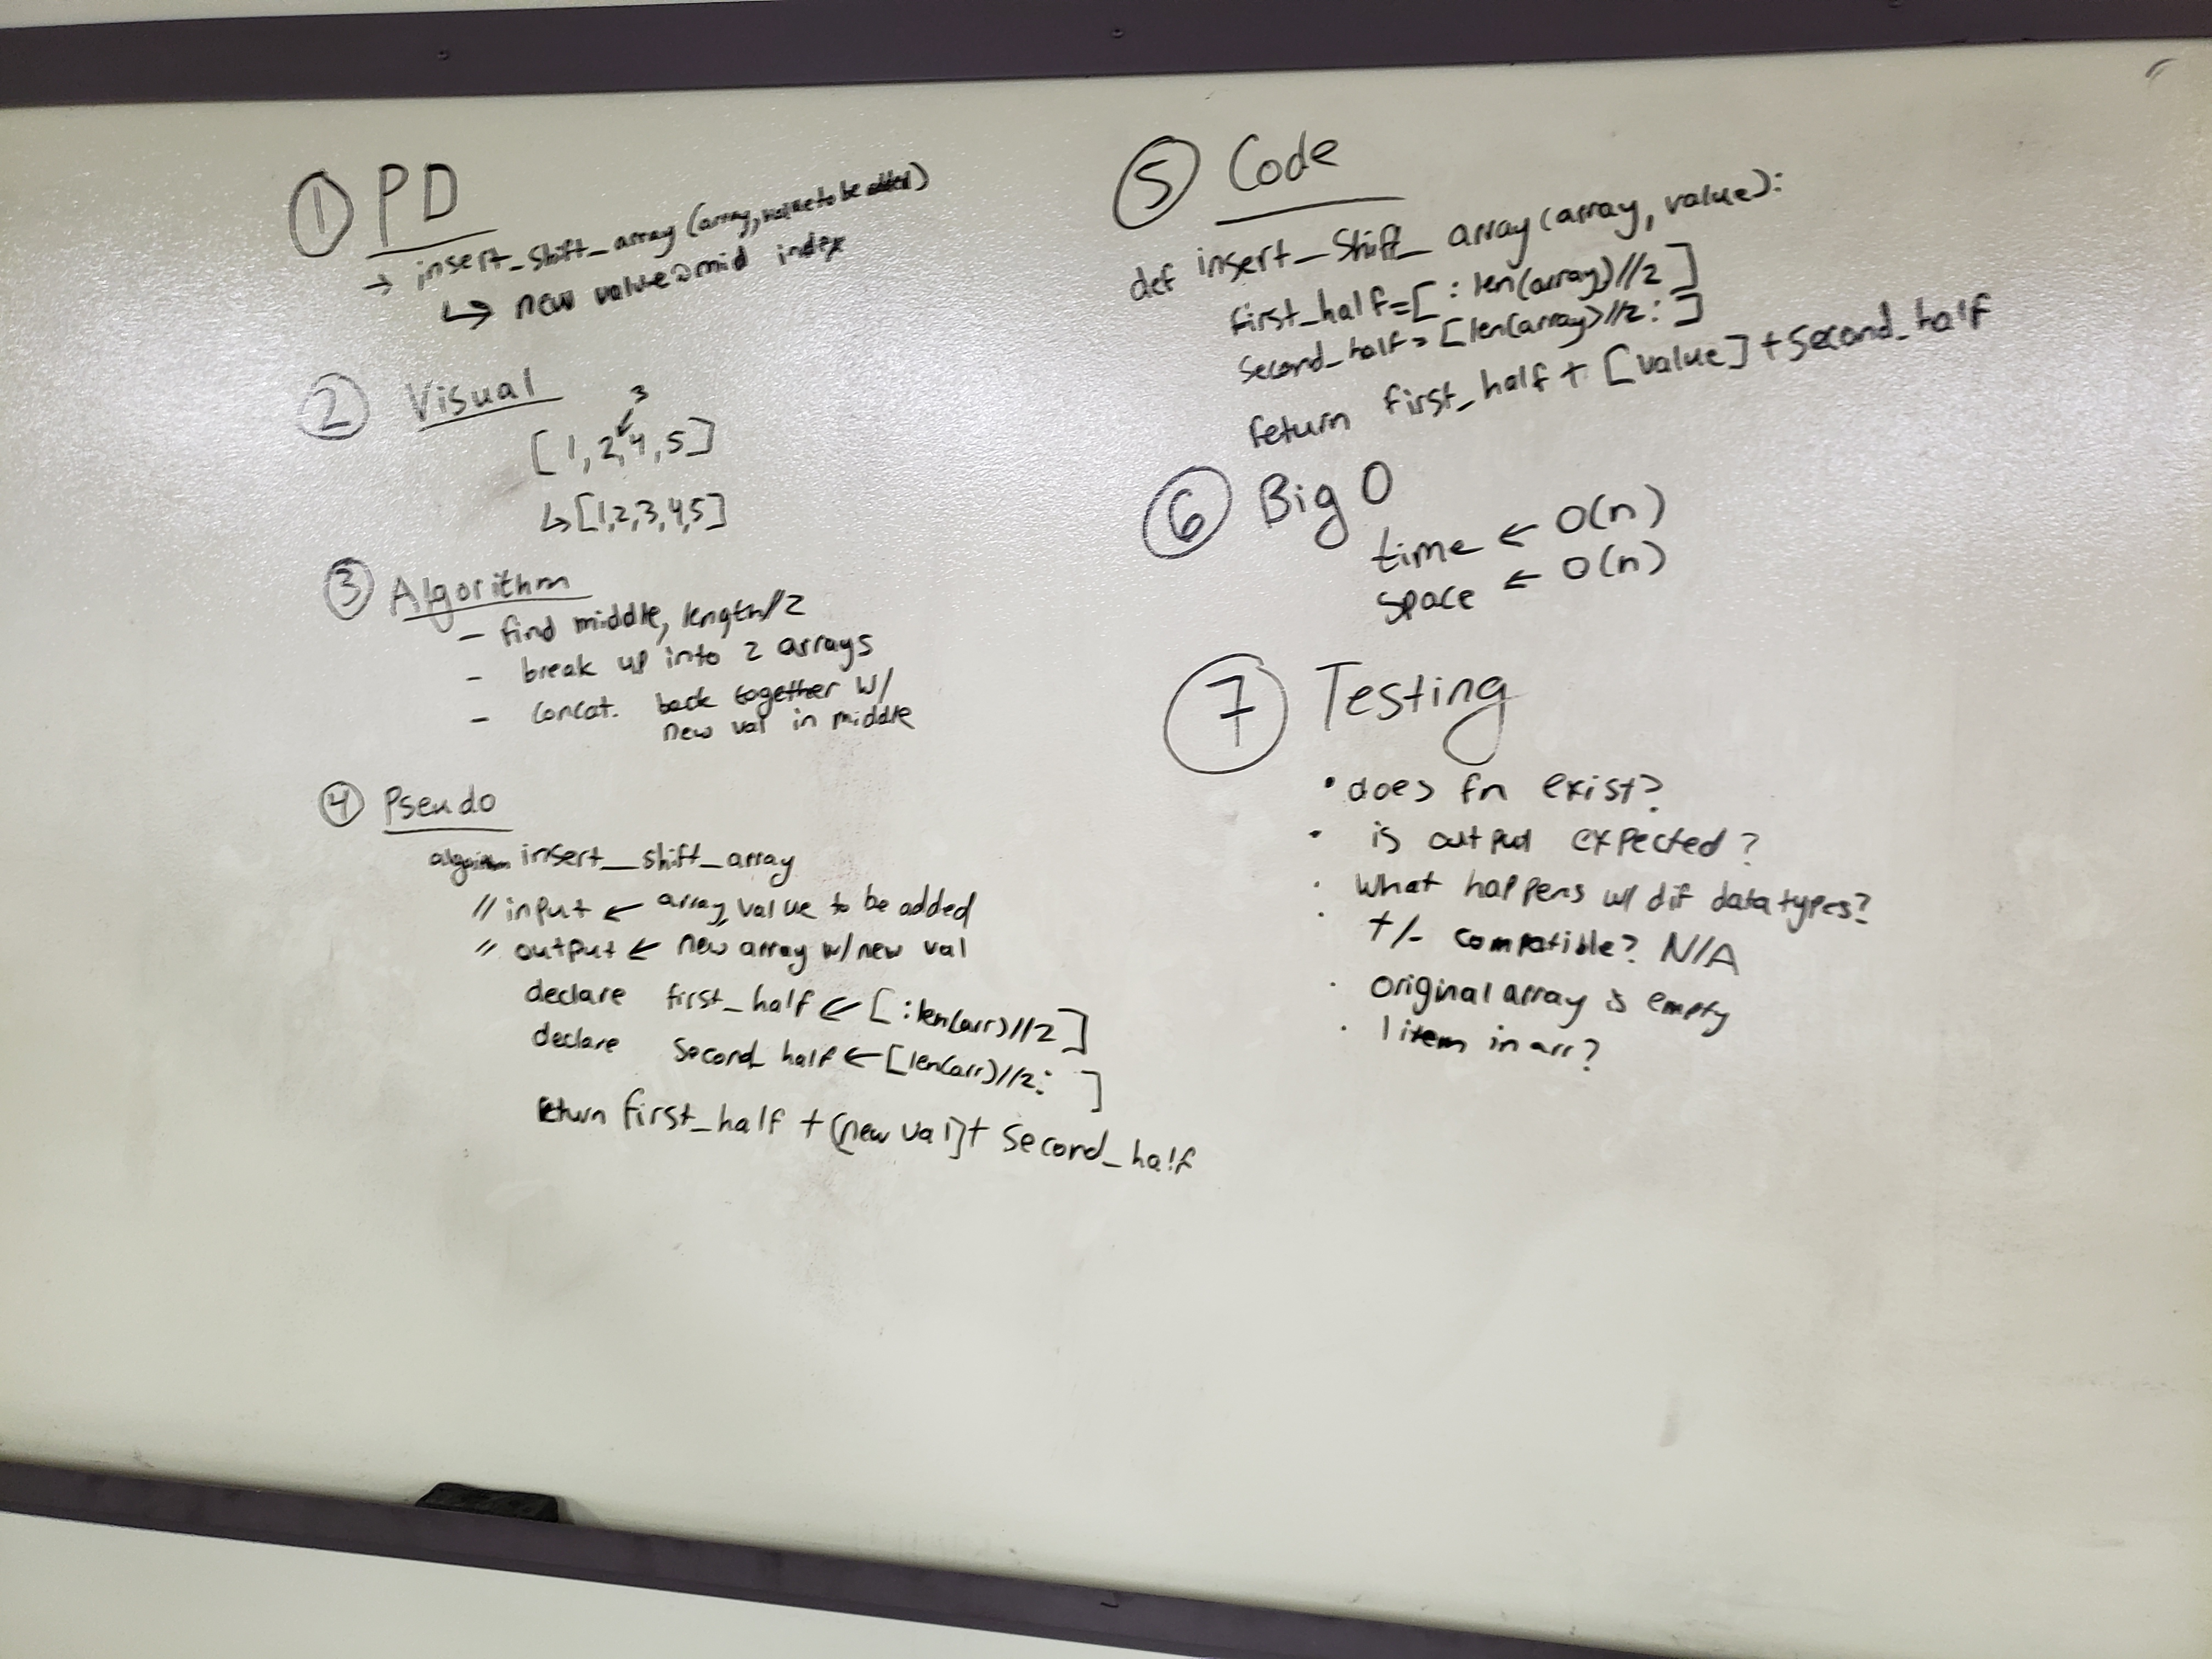 ① PD
→ insert_shift_array (array, value to be added)
↳ new value @ mid index
② Visual
3
[1, 2, 4, 5]
↳ [1,2,3,4,5]
③ Algorithm
- find middle, length//2
- break up into 2 arrays
- concat. back together w/
new val in middle
④ Pseudo
algorithm insert_shift_array
// input ← array, value to be added
// output ← new array w/ new val
declare first_half ← [:len(arr)//2]
declare second_half ← [len(arr)//2: ]
return first_half + [new val] + second_half
⑤ Code
def insert_shift_array(array, value):
first_half = [: len(array)//2]
second_half = [len(array)//2: ]
return first_half + [value] + second_half
⑥ Big O
time ← O(n)
space ← O(n)
⑦ Testing
• does fn exist?
• is output expected?
• what happens w/ dif data types?
• +/- compatible? N/A
• original array is empty
• 1 item in arr?